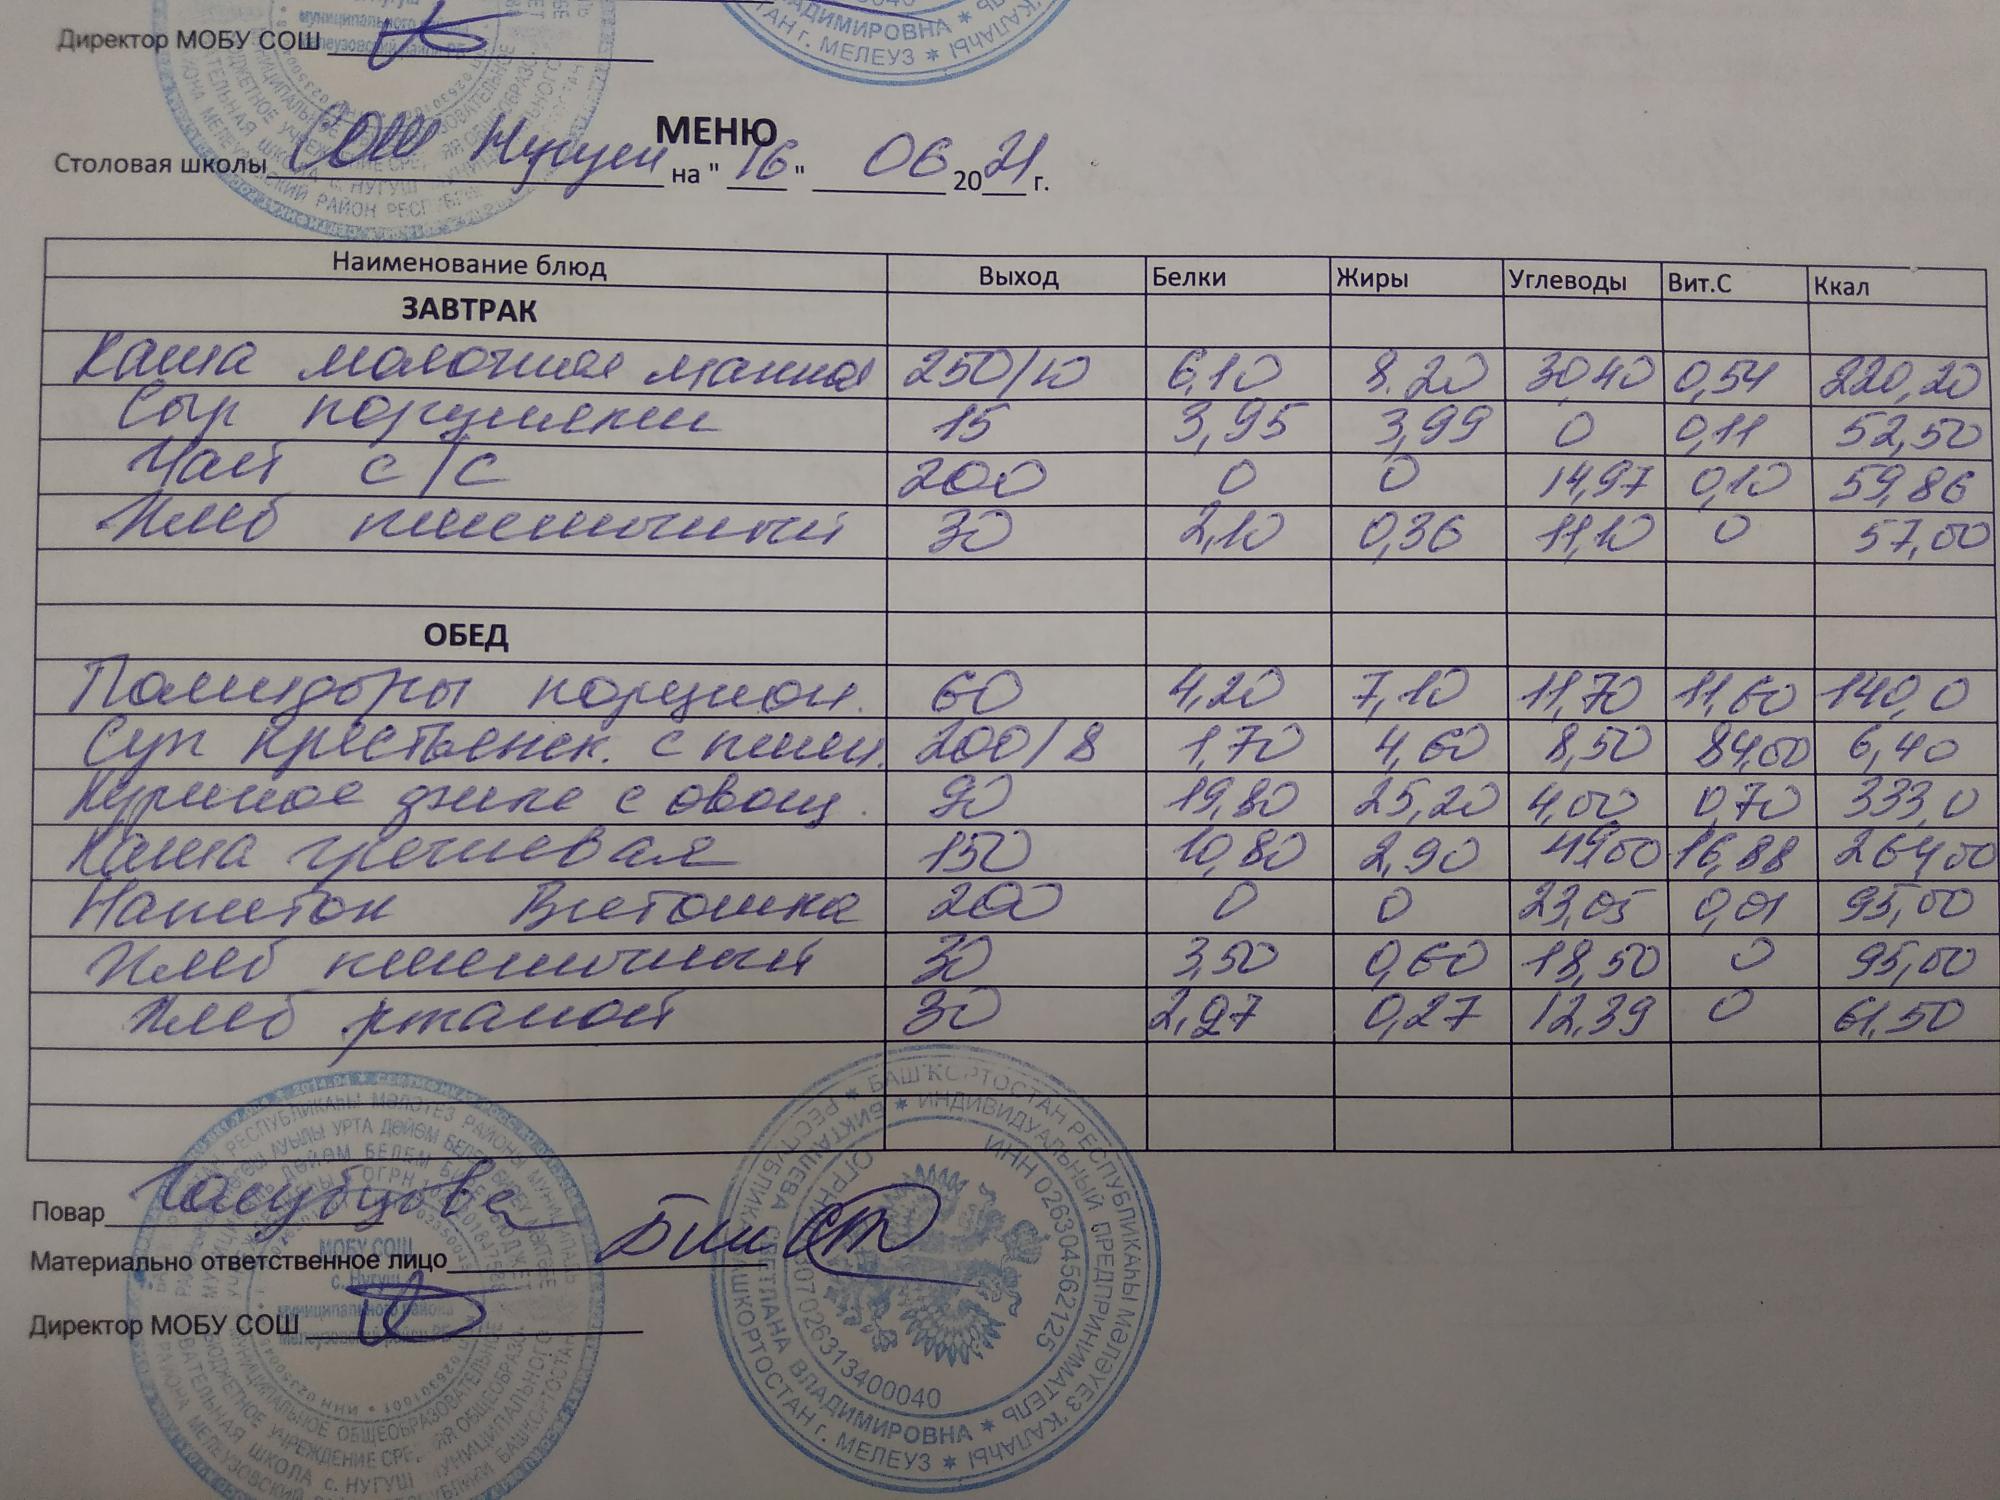 Директор МОБУ СОШ
МЕНЮ
Столовая школы СОШ Нугуш на "16" 06 2021 г.
Наименование блюд Выход Белки Жиры Углеводы Вит.С Ккал
ЗАВТРАК
Каша молочная манная 250/10 6,10 8.20 30,40 0,54 220,20
Сыр порциями 15 3,95 3,99 0 0,11 52,50
Чай с/с 200 0 0 14,97 0,10 59,86
Хлеб пшеничный 30 2,10 0,36 11,10 0 57,00
ОБЕД
Помидоры порцион. 60 4,20 7,10 11,70 11,60 140,0
Суп крестьянск. с пшен. 200/8 1,70 4,60 8,50 84,00 6,40
Куриное филе с овощ. 90 19,80 25,20 4,00 0,70 333,0
Каша гречневая 150 10,80 2,90 49,00 16,88 264,00
Напиток Витошка 200 0 0 23,05 0,01 95,00
Хлеб пшеничный 30 3,50 0,60 18,50 0 95,00
Хлеб ржаной 30 2,97 0,27 12,39 0 61,50
Повар Голубцова
Материально ответственное лицо
Директор МОБУ СОШ
БАШҠОРТОСТАН РЕСПУБЛИКАҺЫ МӘЛӘҮЕЗ ҠАЛАҺЫ
РЕСПУБЛИКА БАШКОРТОСТАН г. МЕЛЕУЗ
ИНДИВИДУАЛЬНЫЙ ПРЕДПРИНИМАТЕЛЬ
БИКТАШЕВА СВЕТЛАНА ВЛАДИМИРОВНА
ИНН 026304562125
МОБУ СОШ
с. Нугуш
муниципального района